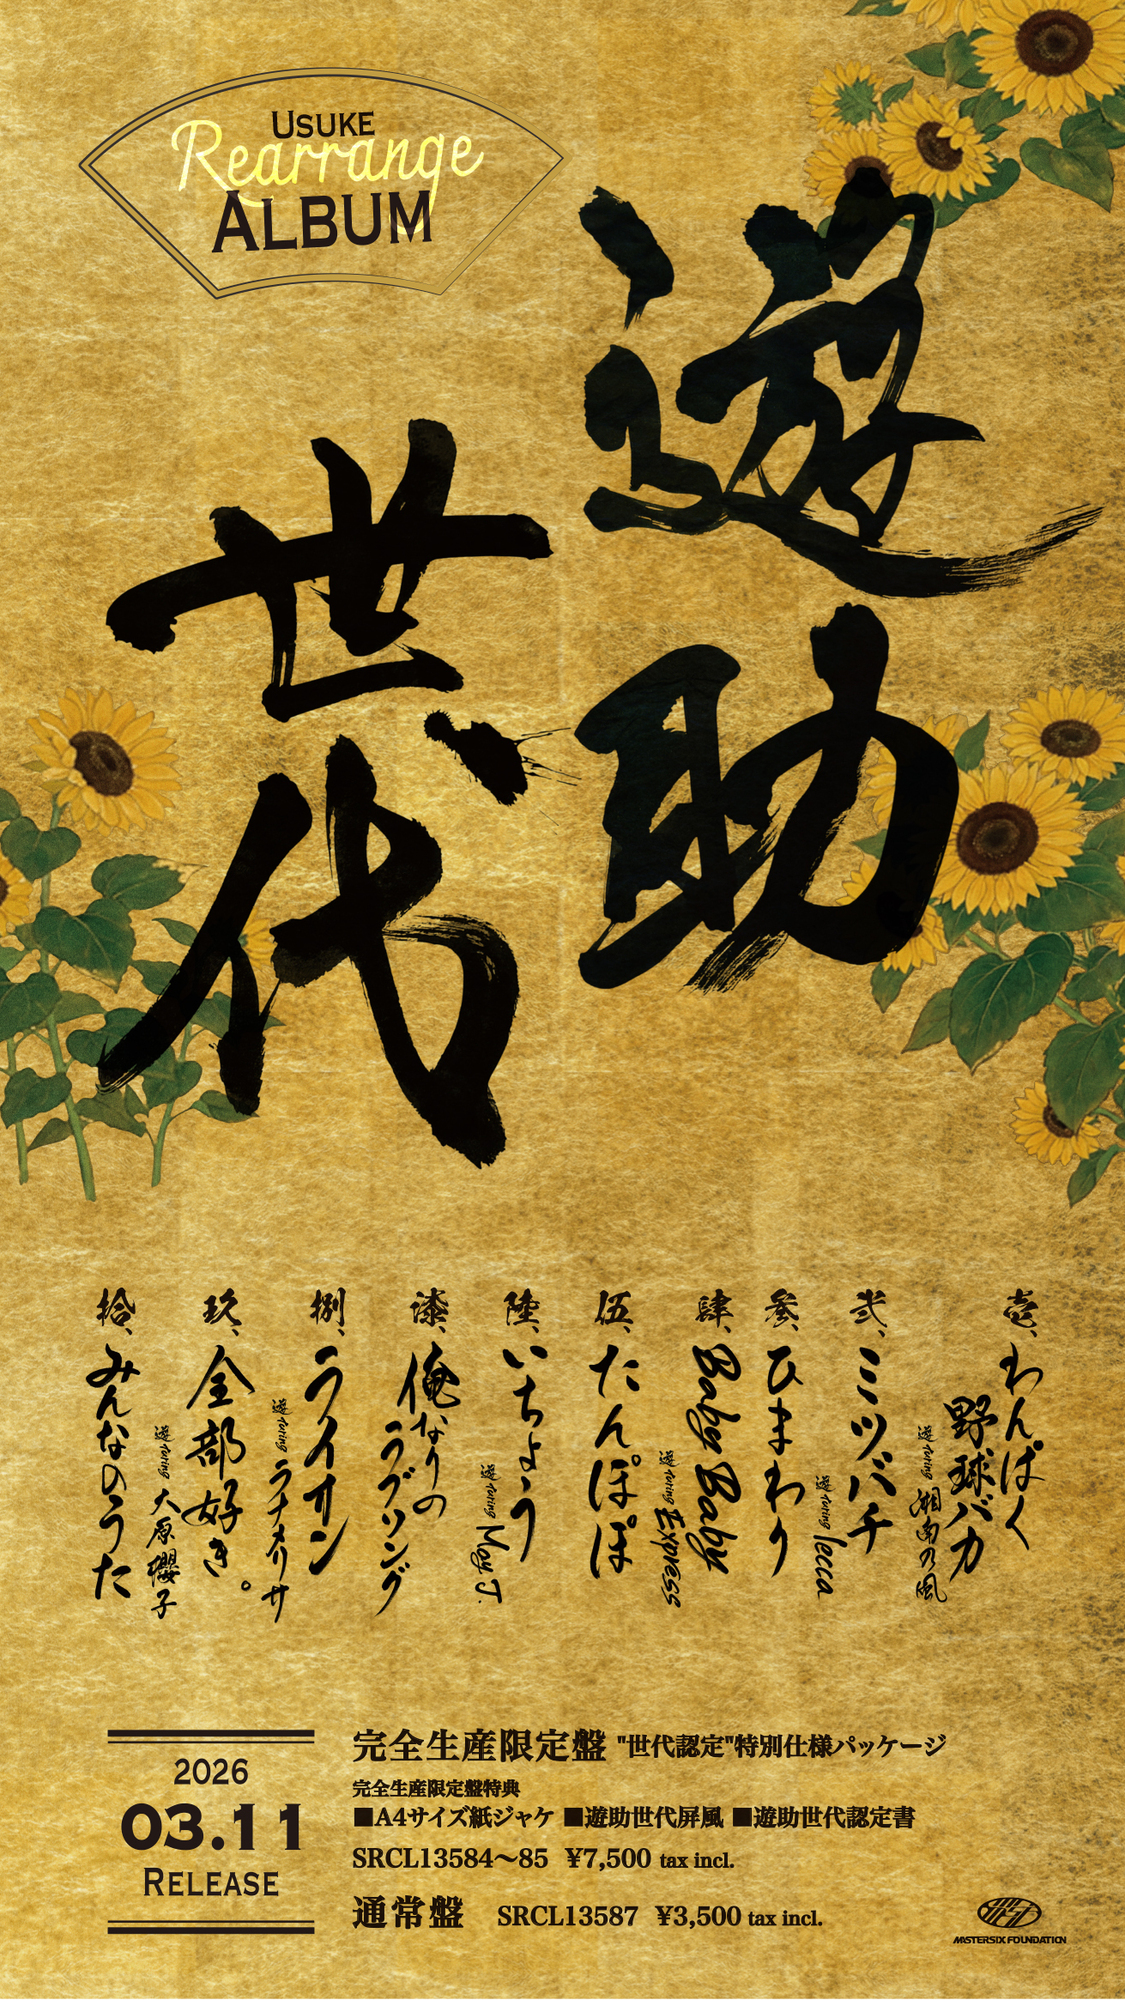 USUKE
Rearrange
ALBUM
遊助
世代
壱、わんぱく野球バカ
遊turing 湘南乃風
弐、ミツバチ
遊turing lecca
参、ひまわり
肆、Baby Baby
遊turing Express
伍、たんぽぽ
陸、いちょう
遊turing May J.
漆、俺なりのラブソング
捌、ライオン
遊turing ラナメリサ
玖、全部好き。
遊turing 大原櫻子
拾、みんなのうた
2026
03.11
RELEASE
完全生産限定盤 "世代認定"特別仕様パッケージ
完全生産限定盤特典
■A4サイズ紙ジャケ ■遊助世代屏風 ■遊助世代認定書
SRCL13584～85 ¥7,500 tax incl.
通常盤 SRCL13587 ¥3,500 tax incl.
MASTERSIX FOUNDATION